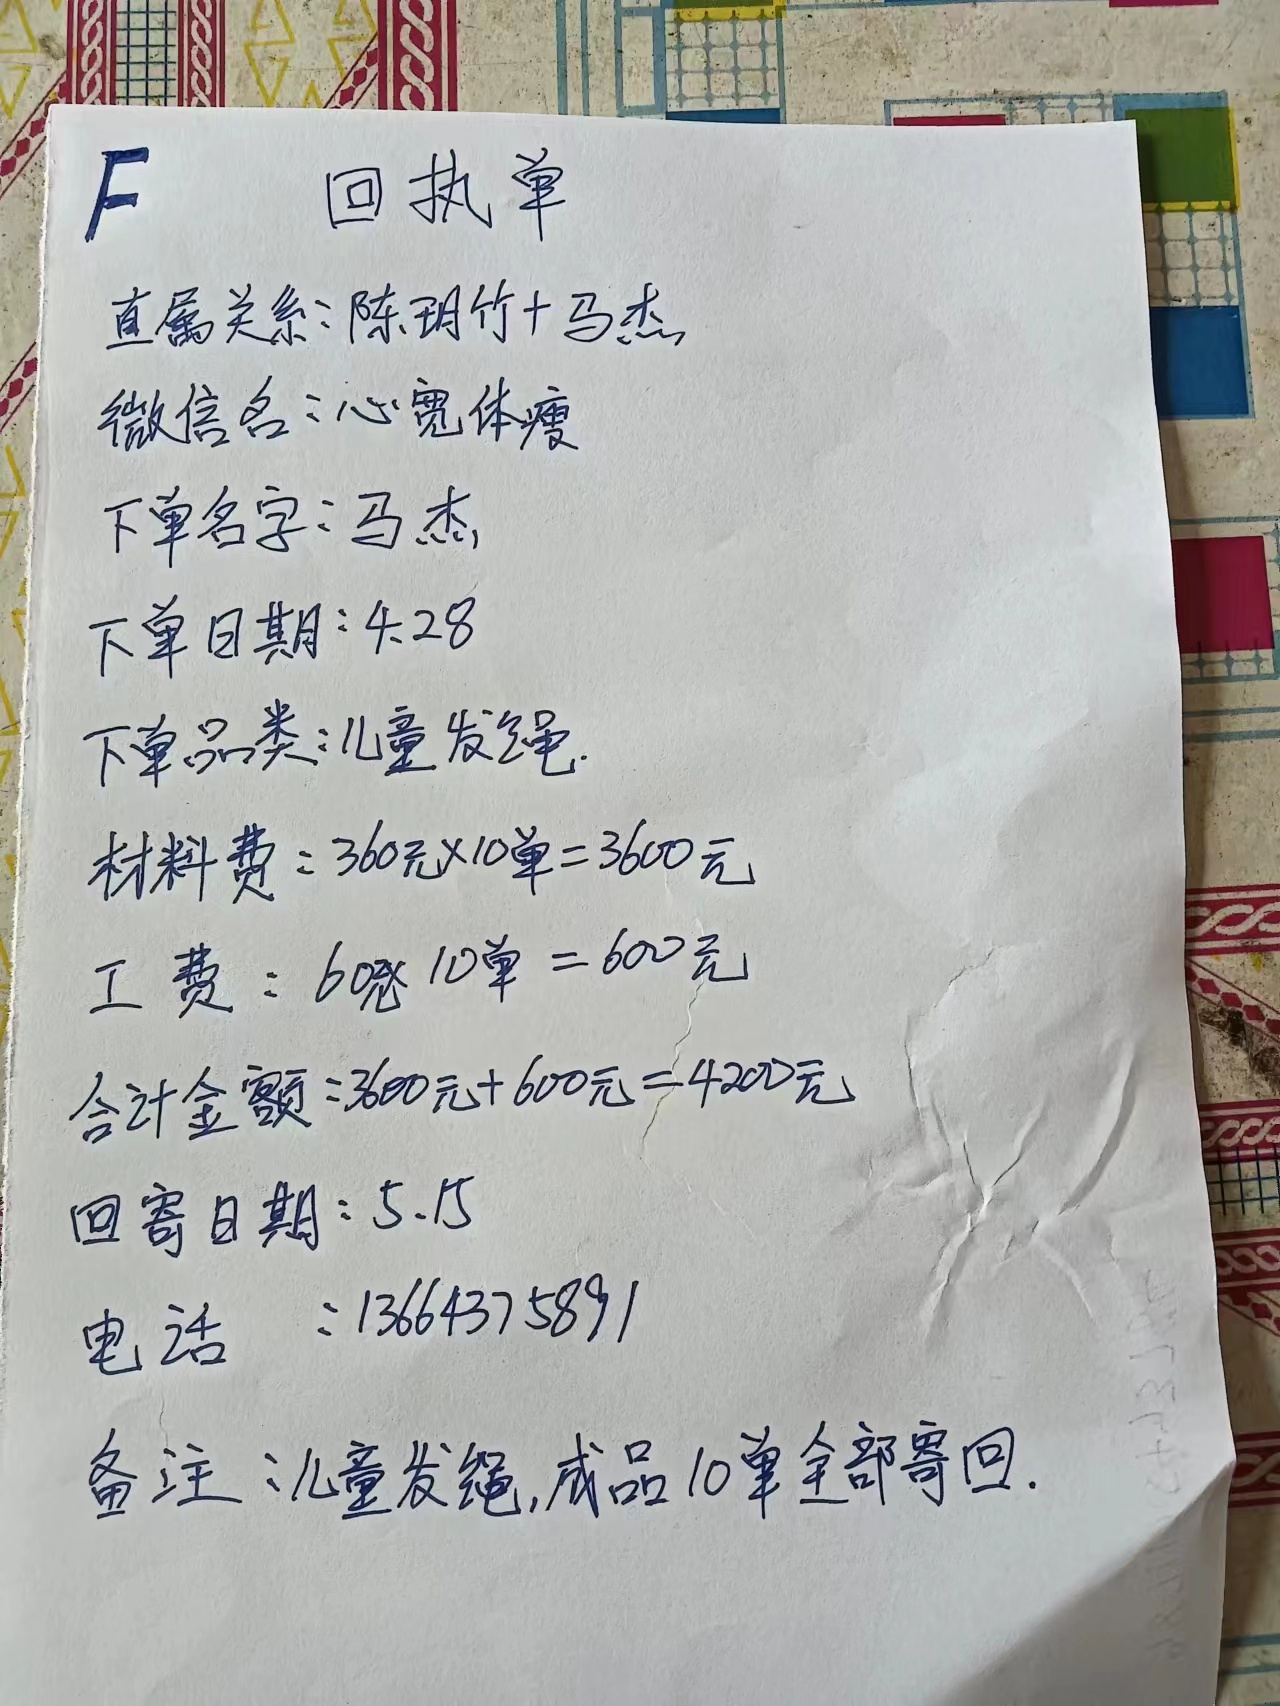 F 回执单
直属关系：陈玥竹+马杰
微信名：心宽体瘦
下单名字：马杰
下单日期：4.28
下单品类：儿童发绳.
材料费：360元×10单=3600元
工费：60元×10单=600元
合计金额：3600元+600元=4200元
回寄日期：5.15
电话：13664375891
备注：儿童发绳,成品10单全部寄回.